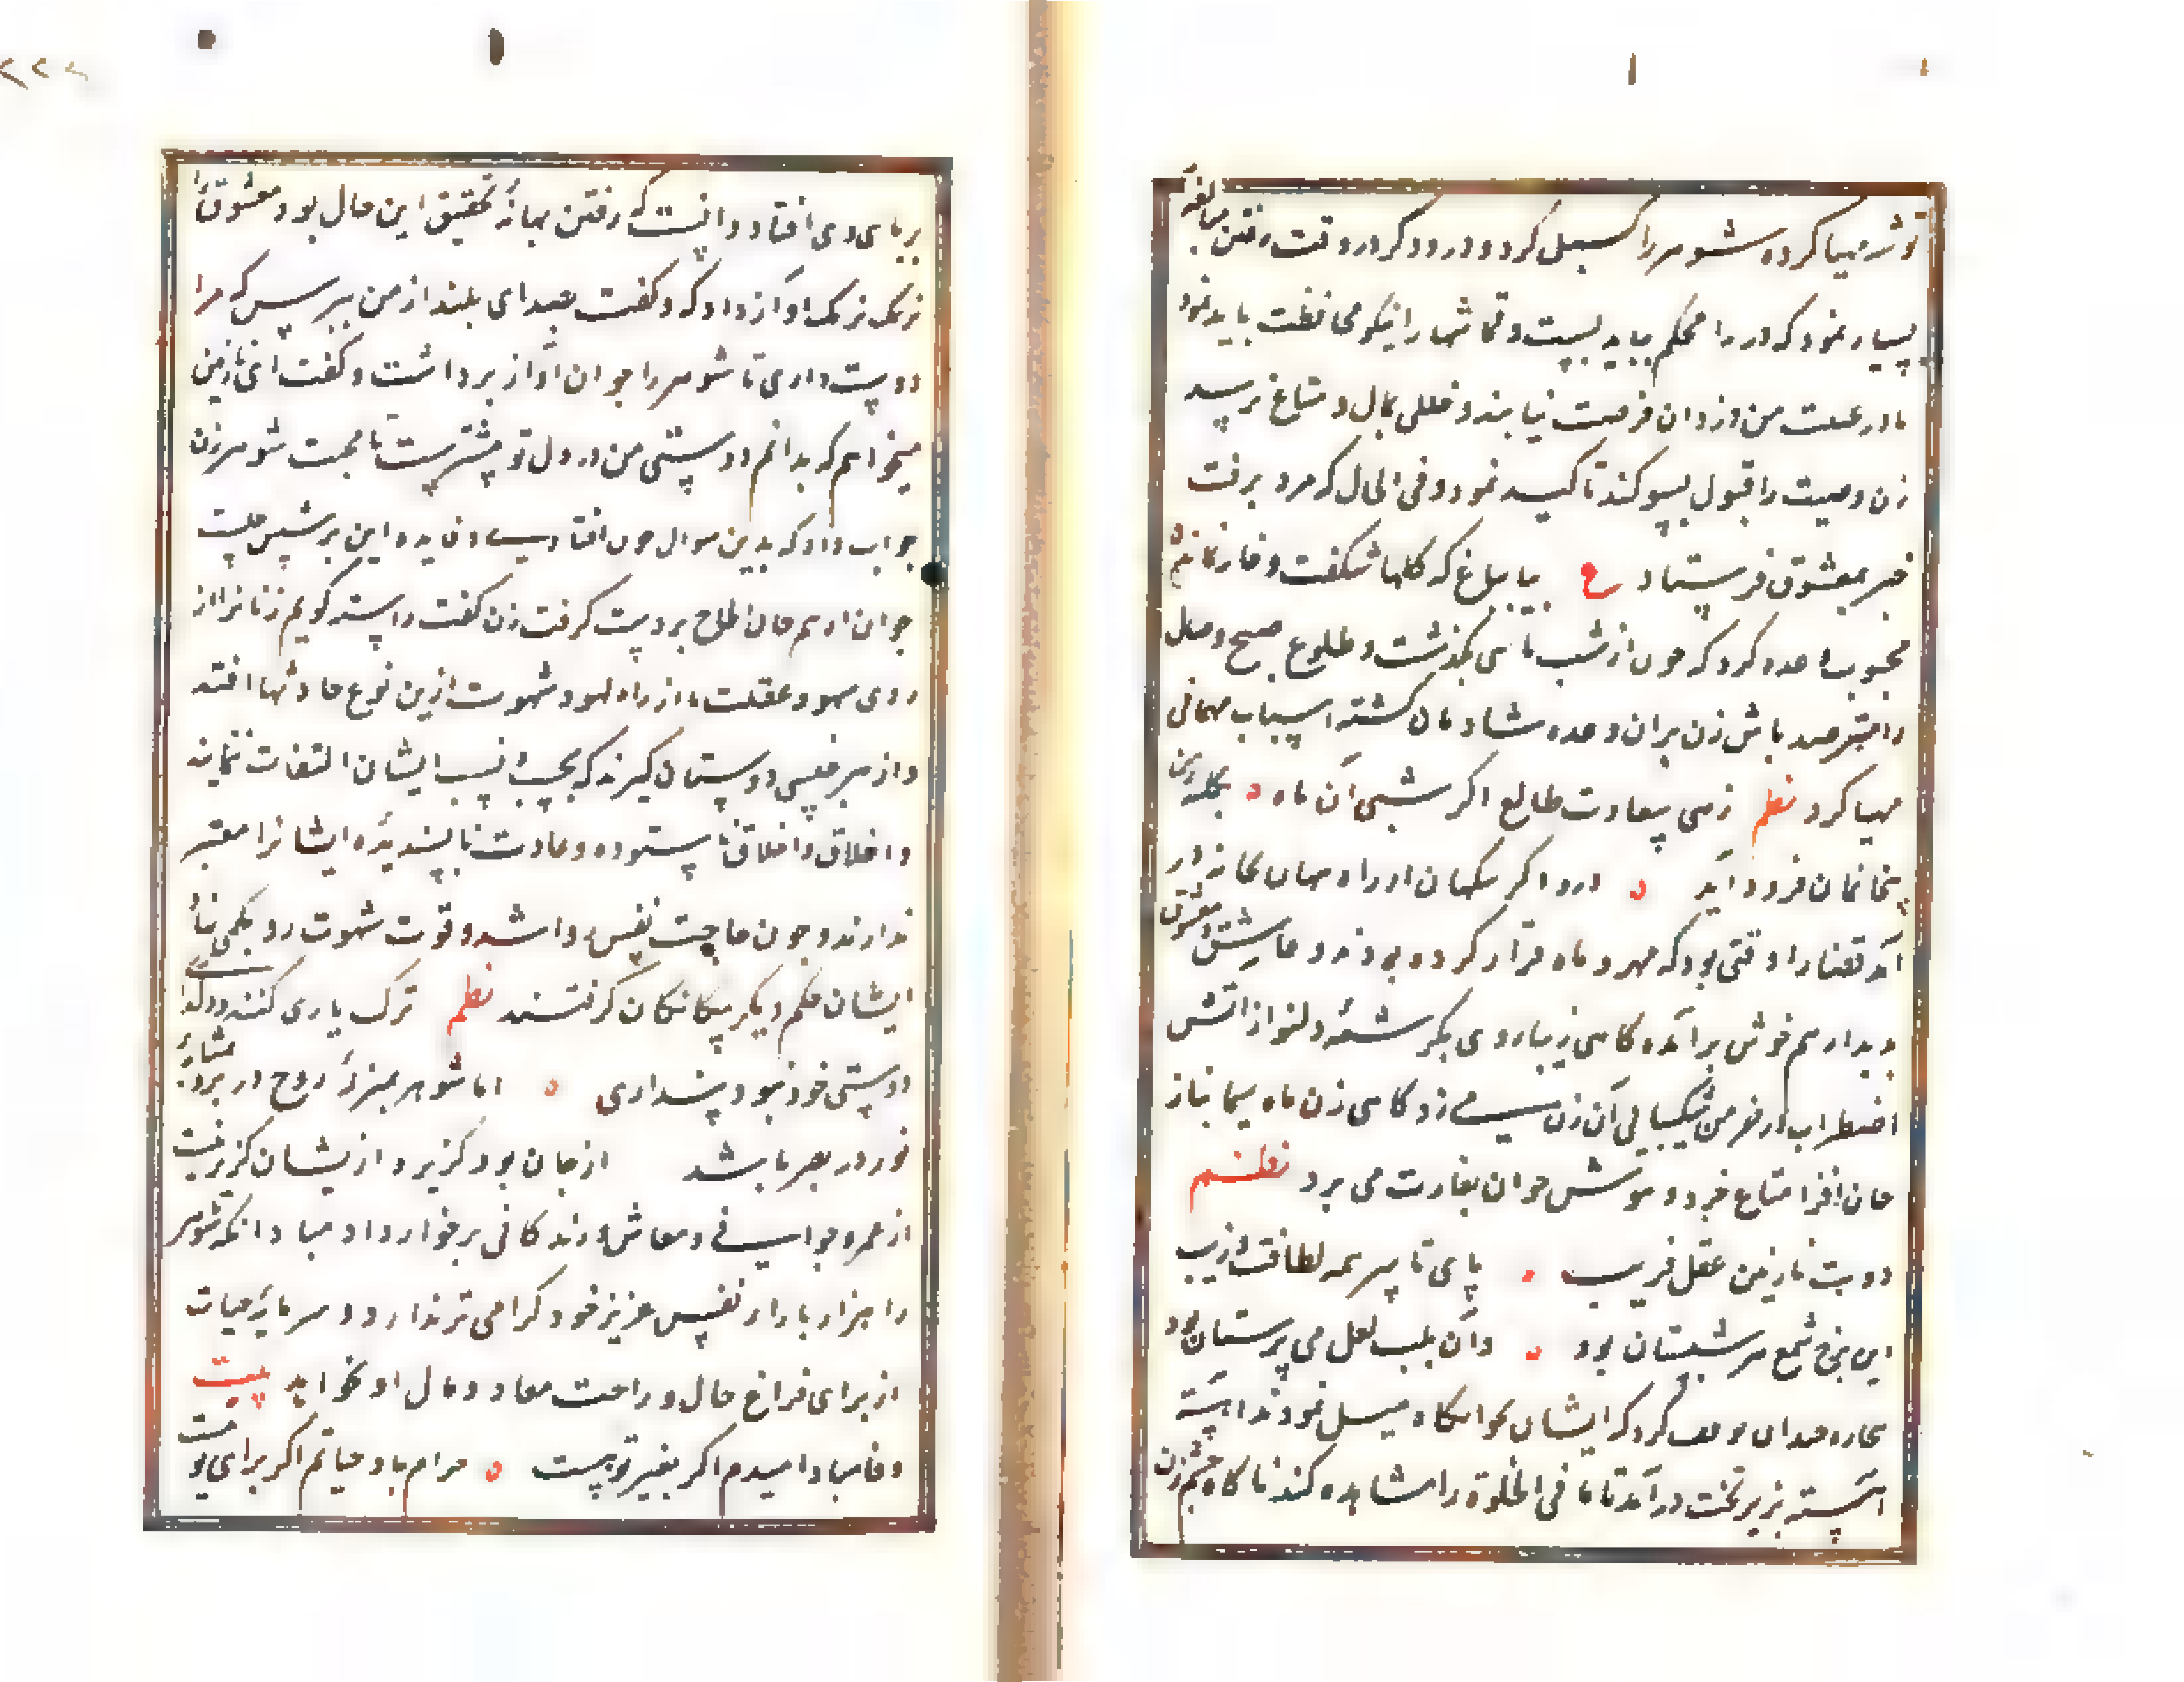 توشه مهیا کرده شوهر را کسیل کرد و درودگر در وقت رفتن مبالغه
بسیار نمود که در را محکم بباید بست و قماشها را نیکو محافظت باید نمود
تا در غیبت من دزدان فرصت نیابند و خللی بمال و متاع نرسد
زن وصیت را قبول بسوکند تاکید نمود و فی الحال که مرد برفت
خبر بمعشوق فرستاد ع بیا بباغ که کلها شکفت و خار نماند
محبوب وعده کرد که چون از شب پاسی بگذشت و طلوع صبح وصال
را مترصد باش زن بران وعده شادمان کشته اسباب مهمانی
مهیا کرد نظم زهی سعادت طالع اکر شبی آن ماه
بخانمان فرود آید درودگر
آمد قضا را وقتی بود که مهر و ماه قرار کرده بودند و عاشق و معشوق
بدیدار هم خوش برآمده کاهی زیباروی بکرشمه دلنواز آتش
اضطراب در خرمن شکیبایی آن زن میزد کاهی زن ماه سیما بناز
جان افزا متاع خرد و هوش جوان بغارت می برد نظم
دو بت نازنین عقل فریب پای تا سر همه لطافت و زیب
این برخ شمع هر شبستان بود وان بلب لعل می پرستان بود
بیچاره چندان توقف کرد که ایشان بخوابکاه میل نمودند آهسته
آهسته بزیر تخت درآمد تا ما فی الخلوة را مشاهده کند ناکاه چشم زن
بر پای وی افتاد دانست که رفتن بهانهٔ تحقیق این حال بود معشوق را
نرمک نرمک آواز داد که و کفت بصدای بلند از من بپرس که مرا
دوست داری تا شوهر را جوان آواز برداشت و کفت ای نازنین
میخواهم که بدانم دوستی من در دل تو بیشترست تا محبت شوهر زن
جواب داد که بدین سوال چون افتادی و فایده این پرسش چیست
جوان الحاح بر دست کرفت زن کفت راست کویم زنان را از
روی سهو و غفلت یا از راه لهو و شهوت ازین نوع حادثها افتد
و از هر جنسی دوستان کیرند که بحسب و نسب ایشان التفات ننمایند
و اخلاق ناستوده و عادت ناپسندیده ایشانرا معتبر
ندارند و چون حاجت نفس روا شد و قوت شهوت روی بکمی نهاد
ایشان حکم دیکر بیکانکان کرفتند نظم ترک یاری کنند و دلداری
دوستی خود نبود پنداری اما شوهر بمنزلهٔ روح در بدن و بمثابهٔ
نور در بصر باشد از جان بود کزیر و ازیشان کزیر نیست
از عمر و جوانی و معاش و زندکانی برخوردار مبادا آنکه شوهر
را هزار بار از نفس عزیز خود کرامی تر ندارد و سرمایهٔ حیات
از برای فراغ حال و راحت معاد و مال او نخواهد بیت
وفا مبادا میدم اکر بغیر تو هست حرام باد حیاتم اکر برای تو نیست